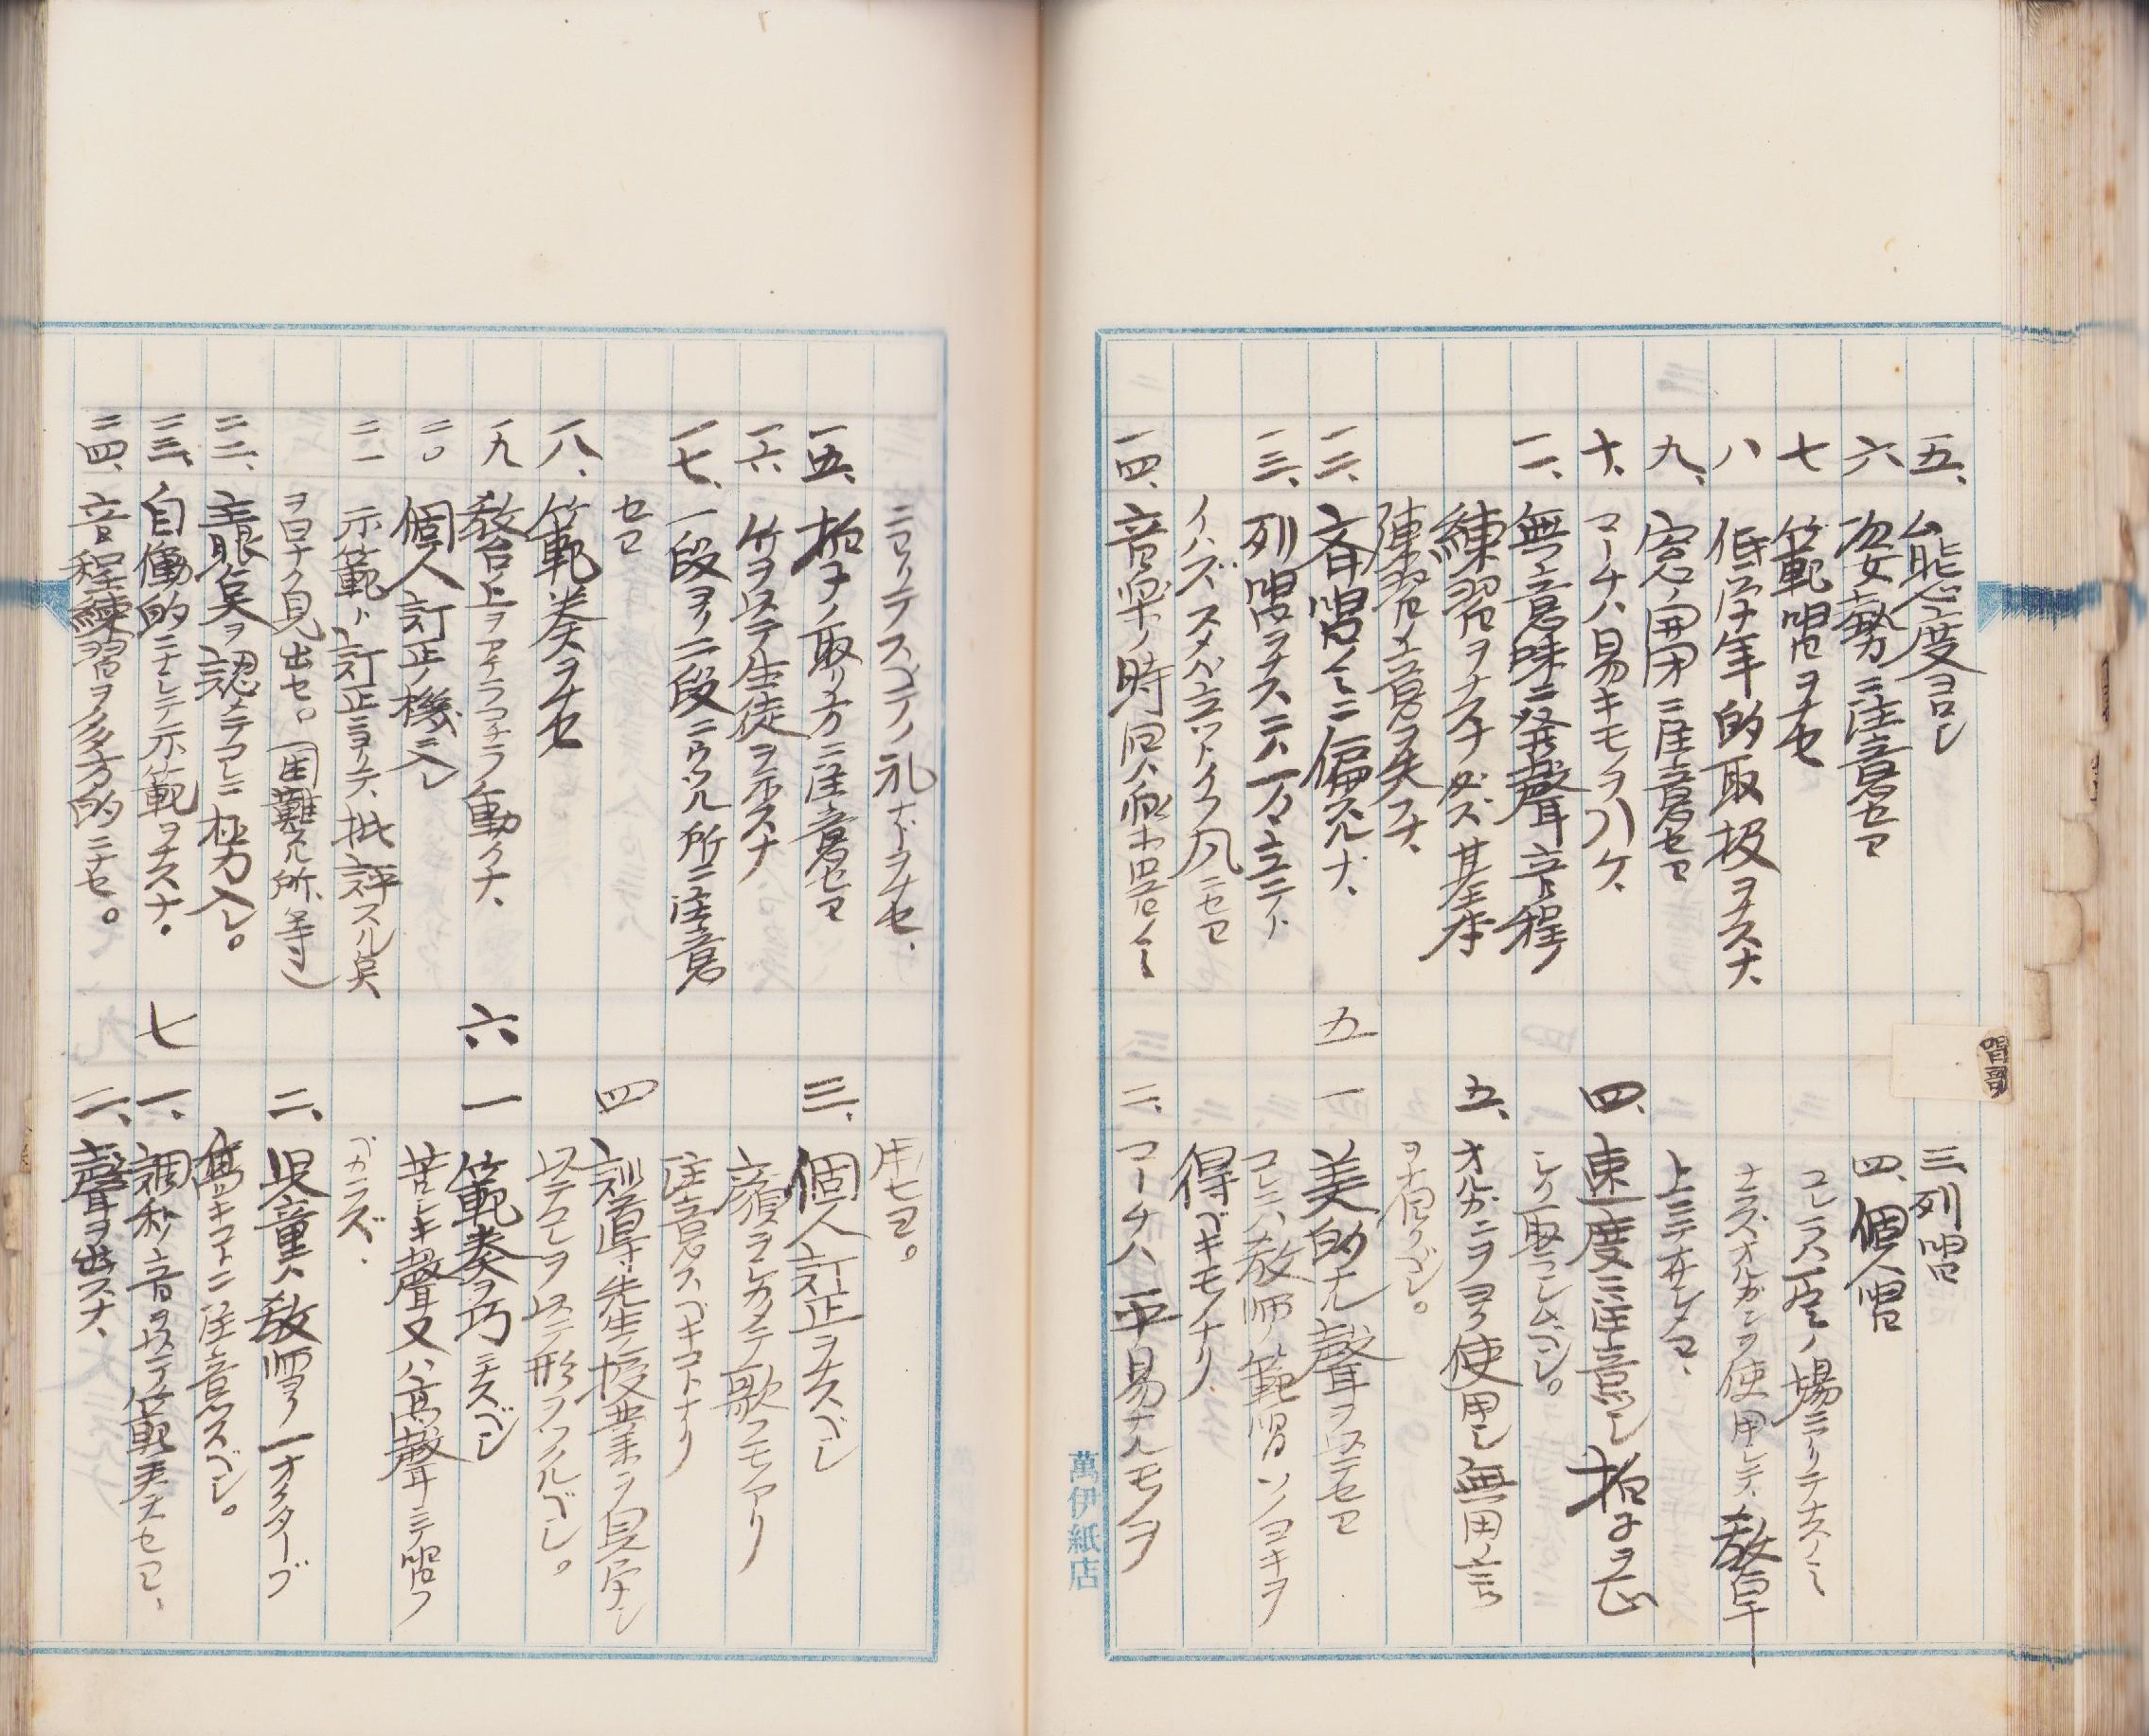 五、態度ヨロシ
六 姿勢ニ注意セヨ
七 範唱ヲナセ
八 低学年的取扱ヲナスナ、
九、窓ノ開閉ニ注意セヨ
十、マーチハ易キモノヲハケ、
一一、無意味ニ発聲音程
練習ヲナスナ必ズ基本
練習ノ意ヲ失フナ、
一二、斉唱ノミニ偏スルナ、
一三、列唱ヲナスニハ一々立ニト
イハズスメバ立ツトイフ風ニセヨ
一四、音楽ノ時間ハ級長ノミ
三、列唱
四、個人唱
コレラハ
ノ場ニヨリテナスノミ
ナラズオルガンヲ使用シテ、教草
上ニテナサシメヨ、
四、速度ニ注意シ拍子ヲ正
シク再ラシムベシ。
五、オルガンヲヨク使用シ無用ノ言
ヲ省クベシ。
五
一 美的ナル聲ヲ以テセヨ
コレニハ教師ノ範唱ソノヨキヲ
得ベキモノナリ
二、マーチハ平易ナルモノヲ
萬伊紙店
唱歌
ニヨリテスベテノ礼ナドヲナセ、
一五、拍子ノ取リ方ニ注意セヨ
一六、竹ヲ以テ生徒ヲ示スナ
一七、一段ヨリ二段ニウツル所ニ注意
セヨ
一八、範奏ヲナセ
一九 教台上ヲアチラコチラ動クナ、
二〇 個人訂正ノ機ニ入レ
二一 示範ト訂正ニヨリテ、批評スル点
ヲ口ナク見出セ。(困難ナル所等)
二二、主眼点ヲ認メテコレニ極力入レ。
二三、自働的ニナシテ示範ヲナスナ。
二四、音程練習ヲ多方的ニナセ。
用セヨ。
三、個人訂正ヲナスベシ
顔ヲシカメテ歌フモノアリ
注意スベキコトナリ
四 訓導先生ノ授業ヲ見学シ
以テコレヲ以テ形ヲツクルベシ。
六
一 範奏ヲ巧ニナスベシ
苦シキ聲又ハ高聲ニテ唱フ
ベカラズ.
二、児童ハ教師ヨリ一オクターブ
高キコトニ注意スベシ。
七
一、調和音ヲ以テ範奏ヲセヨ、
二、聲ヲ出スナ、